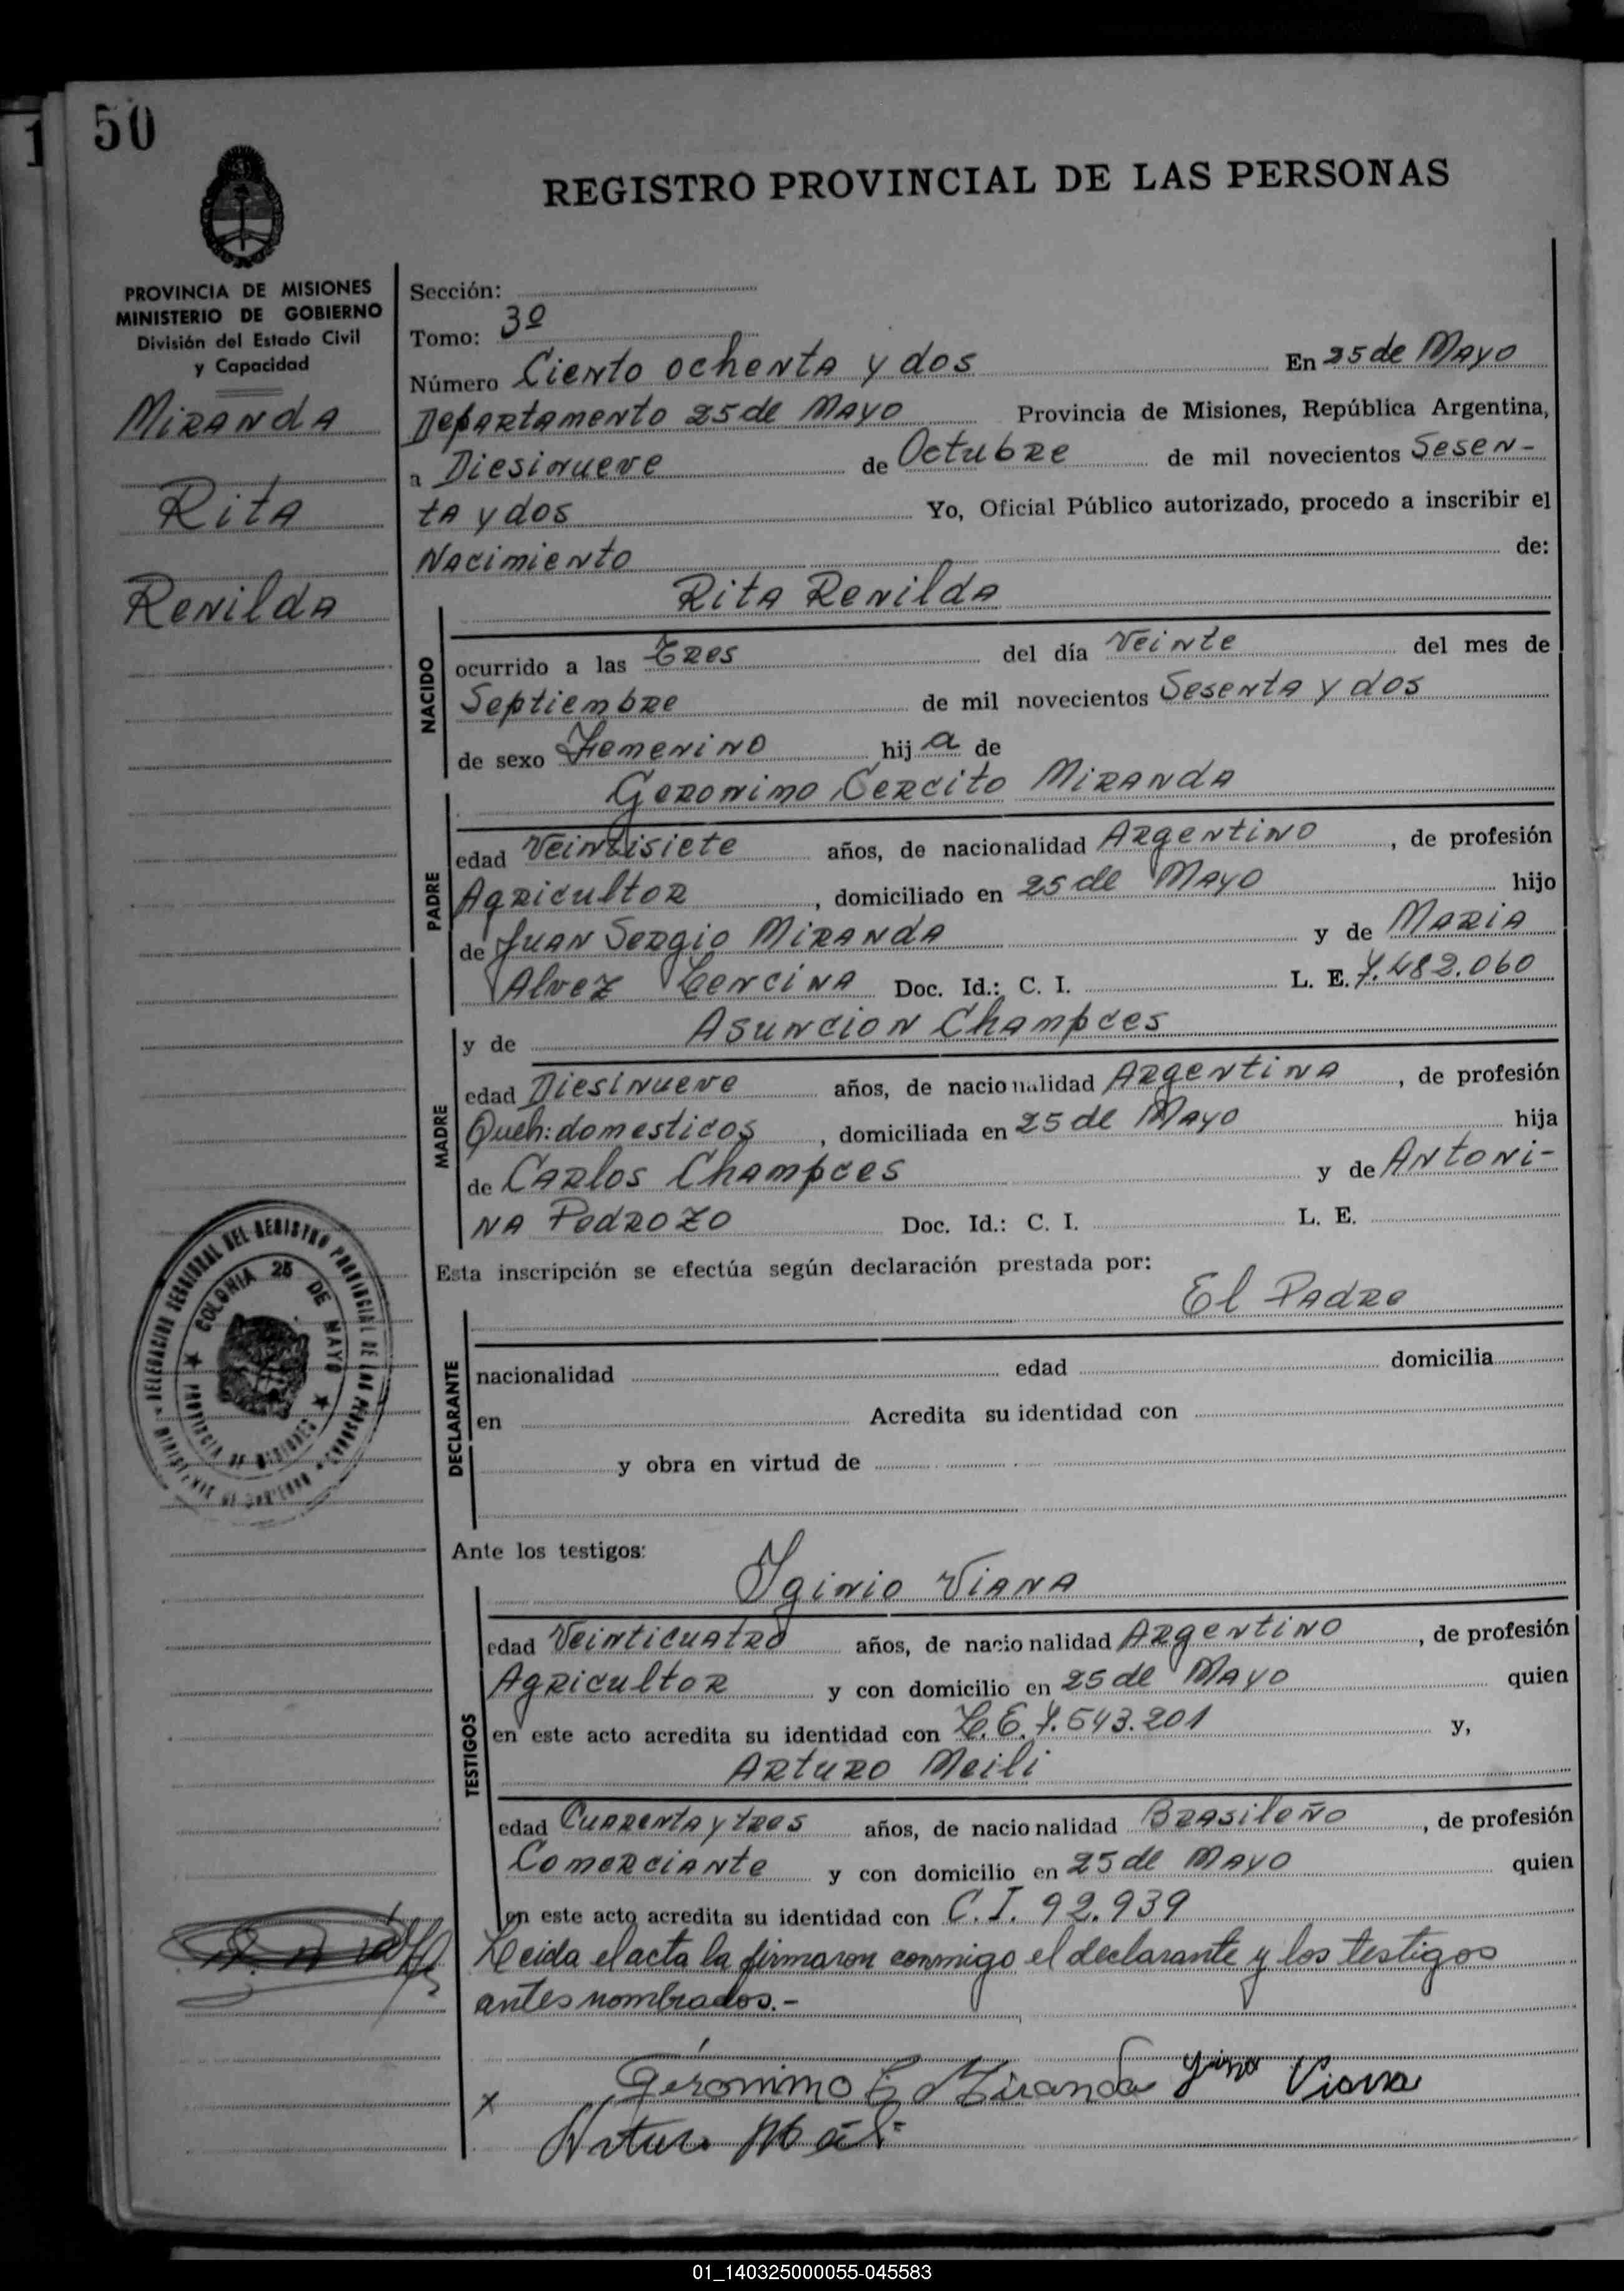 50
1
REGISTRO PROVINCIAL DE LAS PERSONAS
PROVINCIA DE MISIONES
MINISTERIO DE GOBIERNO
División del Estado Civil
y Capacidad
Miranda
Rita
Renilda
Sección:
Tomo: 3º
Número Ciento ochenta y dos En 25 de Mayo
Departamento 25 de Mayo Provincia de Misiones, República Argentina,
a Diesinueve de Octubre de mil novecientos Sesen-
ta y dos Yo, Oficial Público autorizado, procedo a inscribir el
Nacimiento de:
Rita Renilda
NACIDO
ocurrido a las Tres del día Veinte del mes de
Septiembre de mil novecientos Sesenta y dos
de sexo Femenino hij a de
Geronimo Tercito Miranda
PADRE
edad Veintisiete años, de nacionalidad Argentino, de profesión
Agricultor, domiciliado en 25 de Mayo hijo
de Juan Sergio Miranda y de Maria
Alvez Doc. Id.: C. I. L. E. 7.482.060
y de Asuncion Champces
MADRE
edad Diesinueve años, de nacionalidad Argentina, de profesión
Queh: domesticos, domiciliada en 25 de Mayo hija
de Carlos Champces y de Antoni-
na Pedrozo Doc. Id.: C. I. L. E.
Esta inscripción se efectúa según declaración prestada por:
El Padre
DECLARANTE
nacionalidad edad domicilia
en Acredita su identidad con
y obra en virtud de
DELEGACION SECCIONAL DEL REGISTRO PROVINCIAL DE LAS PERSONAS
MINISTERIO DE GOBIERNO
COLONIA 25 DE MAYO
PROVINCIA DE MISIONES
Ante los testigos:
Iginio Viana
TESTIGOS
edad Veinticuatro años, de nacionalidad Argentino, de profesión
Agricultor y con domicilio en 25 de Mayo quien
en este acto acredita su identidad con L.E. 7.543.201 y,
Arturo Meili
edad Cuarenta y tres años, de nacionalidad Brasileño, de profesión
Comerciante y con domicilio en 25 de Mayo quien
en este acto acredita su identidad con C.I. 92.939
Leida el acta la firmaron conmigo el declarante y los testigos
antes nombrados.-
Gerónimo T Miranda Viana
x
Arturo
01_140325000055-045583